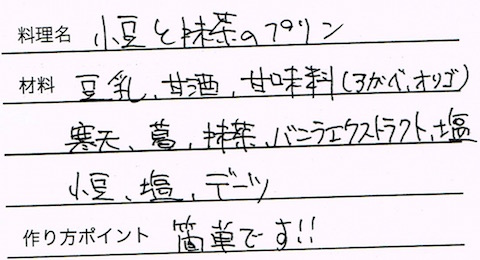 料理名 小豆と抹茶のプリン
材料 豆乳、甘酒、甘味料(アガベ、オリゴ)
寒天、葛、抹茶、バニラエクストラクト、塩
小豆、塩、デーツ
作り方ポイント 簡単です!!